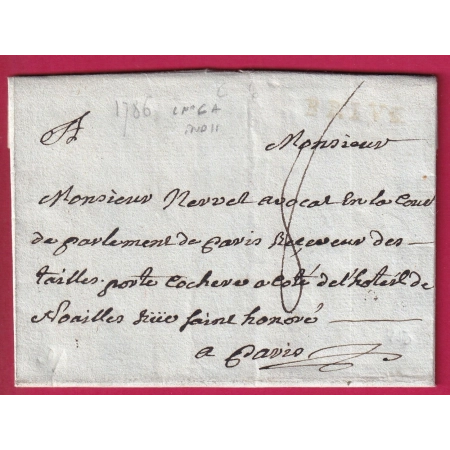 1786
A
Monsieur
8
Monsieur Nervet avocat en la Cour
de parlement de paris Receveur des
tailles porte cochere a coté de l'hotel de
Noailles Rüe saint honoré
a paris